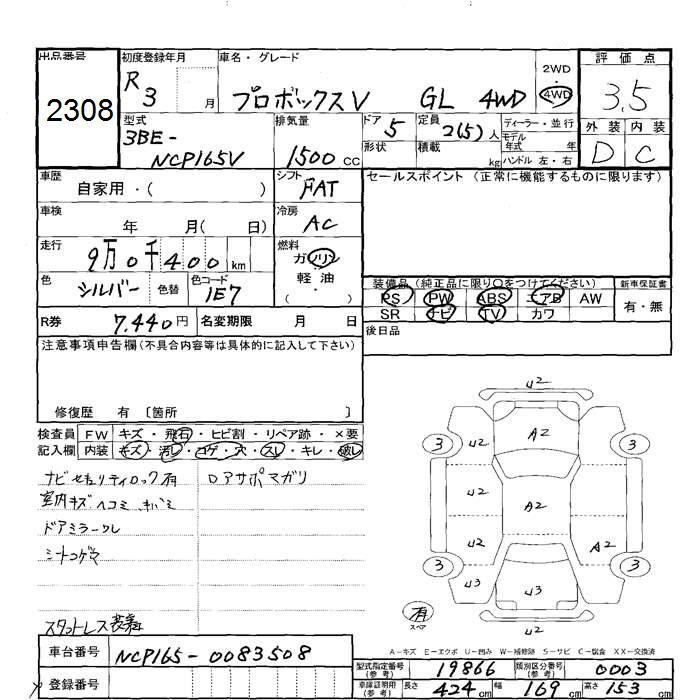 出品番号 初度登録年月 車名・グレード 2WD 評価点
2308 R3 月 プロボックスV GL 4WD 4WD 3.5
型式 排気量 ドア 5 定員 2(5)人 ディーラー・並行 外装 内装
3BE-NCP165V 1500cc 形状 積載 kg モデル年式 年 D C
ハンドル 左・右
車歴 自家用・( ) シフト FAT セールスポイント (正常に機能するものに限ります)
車検 年 月( 日) 冷房 AC
走行 9万0千400km 燃料 ガソリン
軽油
・( )
色 シルバー 色替 色コード 1E7
装備品 (純正品に限り○をつけてください) 新車保証書
PS PW ABS エアB AW 有・無
SR ナビ TV カワ
R券 7,440円 名変期限 月 日 後日品
注意事項申告欄(不具合内容等は具体的に記入して下さい)
修復歴 有 〔箇所 〕
検査員 FW キズ・飛石・ヒビ割・リペア跡・×要
記入欄 内装 キズ・汚レ・コゲ・穴・スレ・キレ・破レ
ナビセキュリティロック有 Dアサポマガリ
室内キズ ヘコミ
ドアミラースレ
シートコゲ
スタットレス装着
U2
3 U2 A2 3
U2 A2
U2 A2
3 U3 U3 3
有
スペア
U2
A-キズ E-エクボ U-凹み W-補修跡 S-サビ C-腐食 XX-交換済
車台番号 NCP165-0083508
登録番号
型式指定番号(参考) 19866 類別区分番号(参考) 0003
車庫証明用(参考) 長さ 424cm 幅 169cm 高さ 153cm